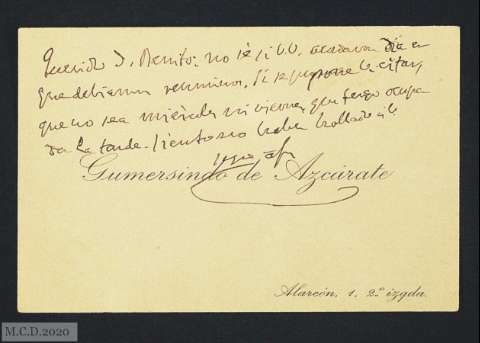 Querido D. Benito: no sé si V. V. acordaron día en
que debíamos reunirnos. Si se propone la citar,
que no sea miércoles ni viernes, que tengo ocupa
da la tarde. Siento no haber hallado á V.
suyo afmo
Gumersindo de Azcárate
Alarcón, 1, 2º izqda.
M.C.D.2020